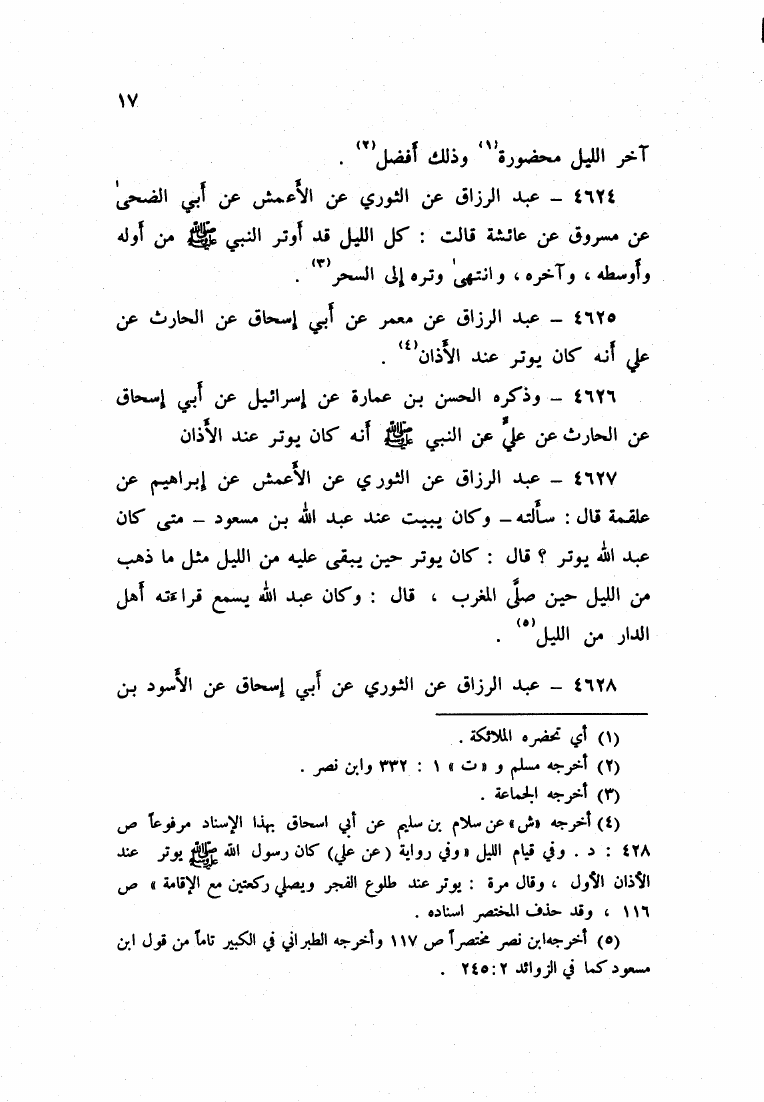 ١٧
آخر الليل محضورة(١) وذلك أفضل(٢) .
٤٦٢٤ – عبد الرزاق عن الثوري عن الأعمش عن أبي الضحىٰ
عن مسروق عن عائشة قالت : كل الليل قد أوتر النبي ﷺ من أوله
وأوسطه ، وآخره ، وانتهىٰ وتره إلى السحر(٣) .
٤٦٢٥ – عبد الرزاق عن معمر عن أبي إسحاق عن الحارث عن
علي أنه كان يوتر عند الأذان(٤) .
٤٦٢٦ – وذكره الحسن بن عمارة عن إسرائيل عن أبي إسحاق
عن الحارث عن عليٍّ عن النبي ﷺ أنه كان يوتر عند الأذان
٤٦٢٧ – عبد الرزاق عن الثوري عن الأعمش عن إبراهيم عن
علقمة قال : سألته – وكان يبيت عند عبد الله بن مسعود – متى كان
عبد الله يوتر ؟ قال : كان يوتر حين يبقى عليه من الليل مثل ما ذهب
من الليل حين صلَّى المغرب ، قال : وكان عبد الله يسمع قراءته أهل
الدار من الليل(٥) .
٤٦٢٨ – عبد الرزاق عن الثوري عن أبي إسحاق عن الأسود بن
(١) أي تحضره الملائكة .
(٢) أخرجه مسلم و « ت » ١ : ٣٣٢ وابن نصر .
(٣) أخرجه الجماعة .
(٤) أخرجه «ش» عن سلام بن سليم عن أبي اسحاق بهذا الإسناد مرفوعاً ص
٤٢٨ : د . وفي قيام الليل « وفي رواية (عن علي) كان رسول الله ﷺ يوتر عند
الأذان الأول ، وقال مرة : يوتر عند طلوع الفجر ويصلي ركعتين مع الإقامة » ص
١١٦ ، وقد حذف المختصر اسناده .
(٥) أخرجه ابن نصر مختصراً ص ١١٧ وأخرجه الطبراني في الكبير تاماً من قول ابن
مسعود كما في الزوائد ٢ : ٢٤٥ .